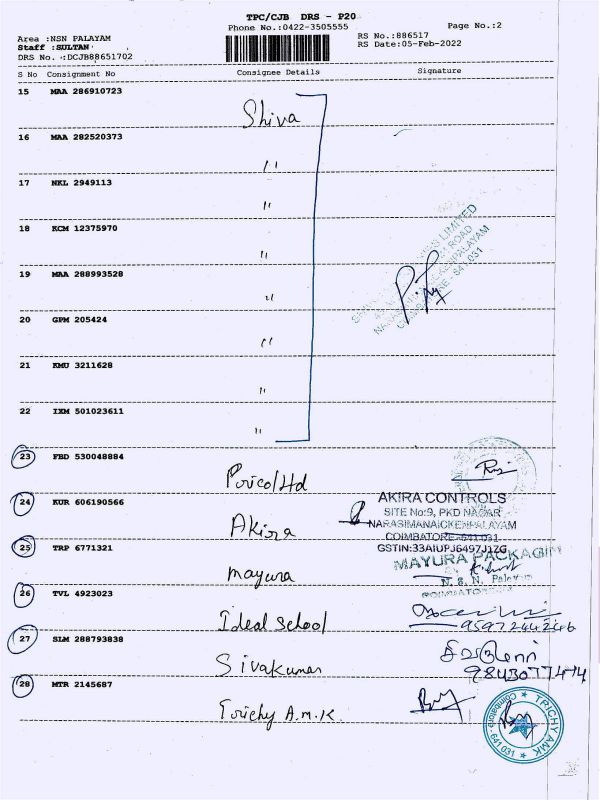 TPC/CJB DRS - P20
Phone No.:0422-3505555
Page No.:2
Area :NSN PALAYAM
Staff :SULTAN
DRS No. :DCJB88651702
RS No.:886517
RS Date:05-Feb-2022
S No Consignment No Consignee Details Signature
15 MAA 286910723 Shiva
16 MAA 282520373 "
17 NKL 2949113 "
18 KCM 12375970 "
19 MAA 288993528 "
20 GPM 205424 "
21 KMU 3211628 "
22 IXM 501023611 "
LIMITED
ROAD
641 031
23 FBD 530048884
24 KUR 606190566 Akira
AKIRA CONTROLS
SITE No:9, PKD NAGAR
NARASIMANAICKENPALAYAM
COIMBATORE-641 031
GSTIN:33AIUPJ6497J1ZG
25 TRP 6771321 mayura
MAYURA PACKAGIN
N. S. N. Palayam
COIMBATORE
26 TVL 4923023 Ideal School
9597244246
27 SLM 288793838 Sivakumar
9843077474
28 MTR 2145687 Trichy A.M.K.
TRICHY AMK
Coimbatore
641 031